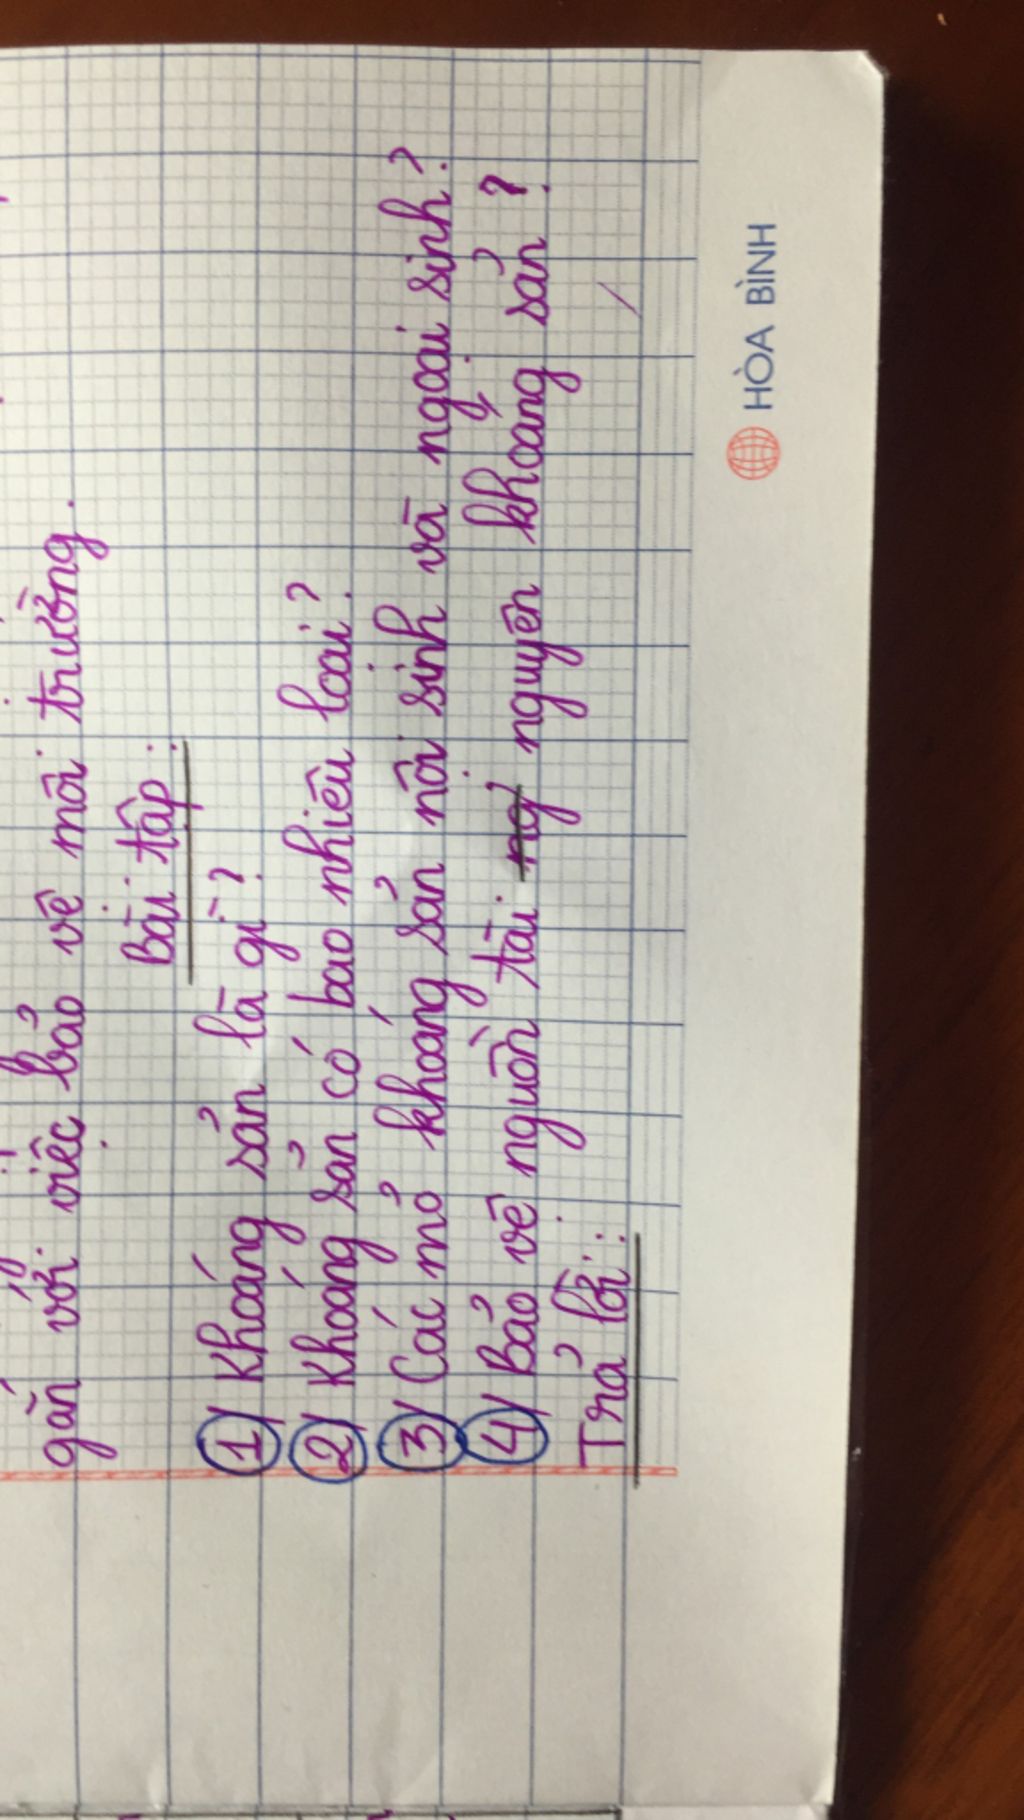 gắn với việc bảo vệ môi trường.
Bài tập:
1) Khoáng sản là gì?
2) Khoáng sản có bao nhiêu loại?
3) Các mỏ khoáng sản nội sinh và ngoại sinh?
4) Bảo vệ nguồn tài ng nguyên khoáng sản?
Trả lời:
HÒA BÌNH